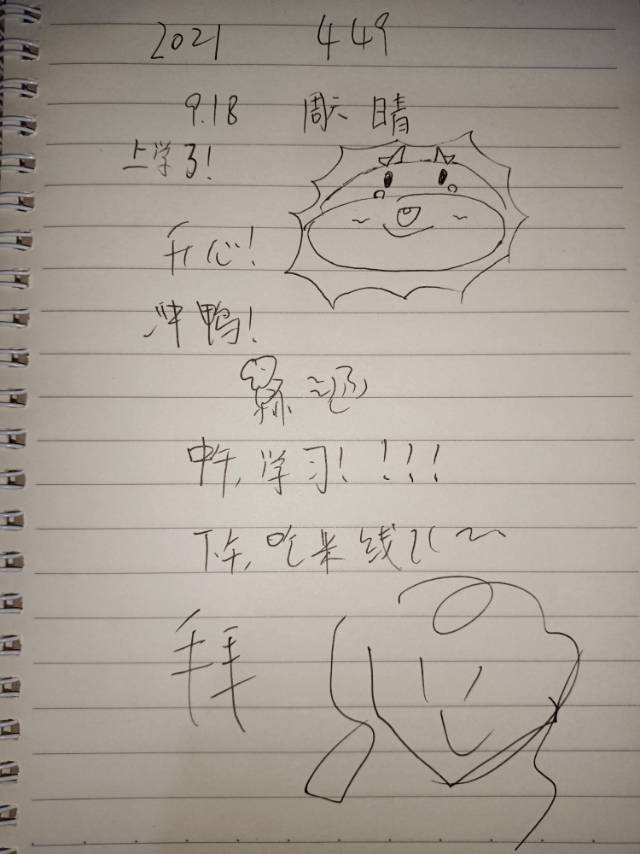 2021 449
9.18 周六 晴
上学了!
开心!
冲鸭!
中午,学习!!!!
下午,吃米线
拜